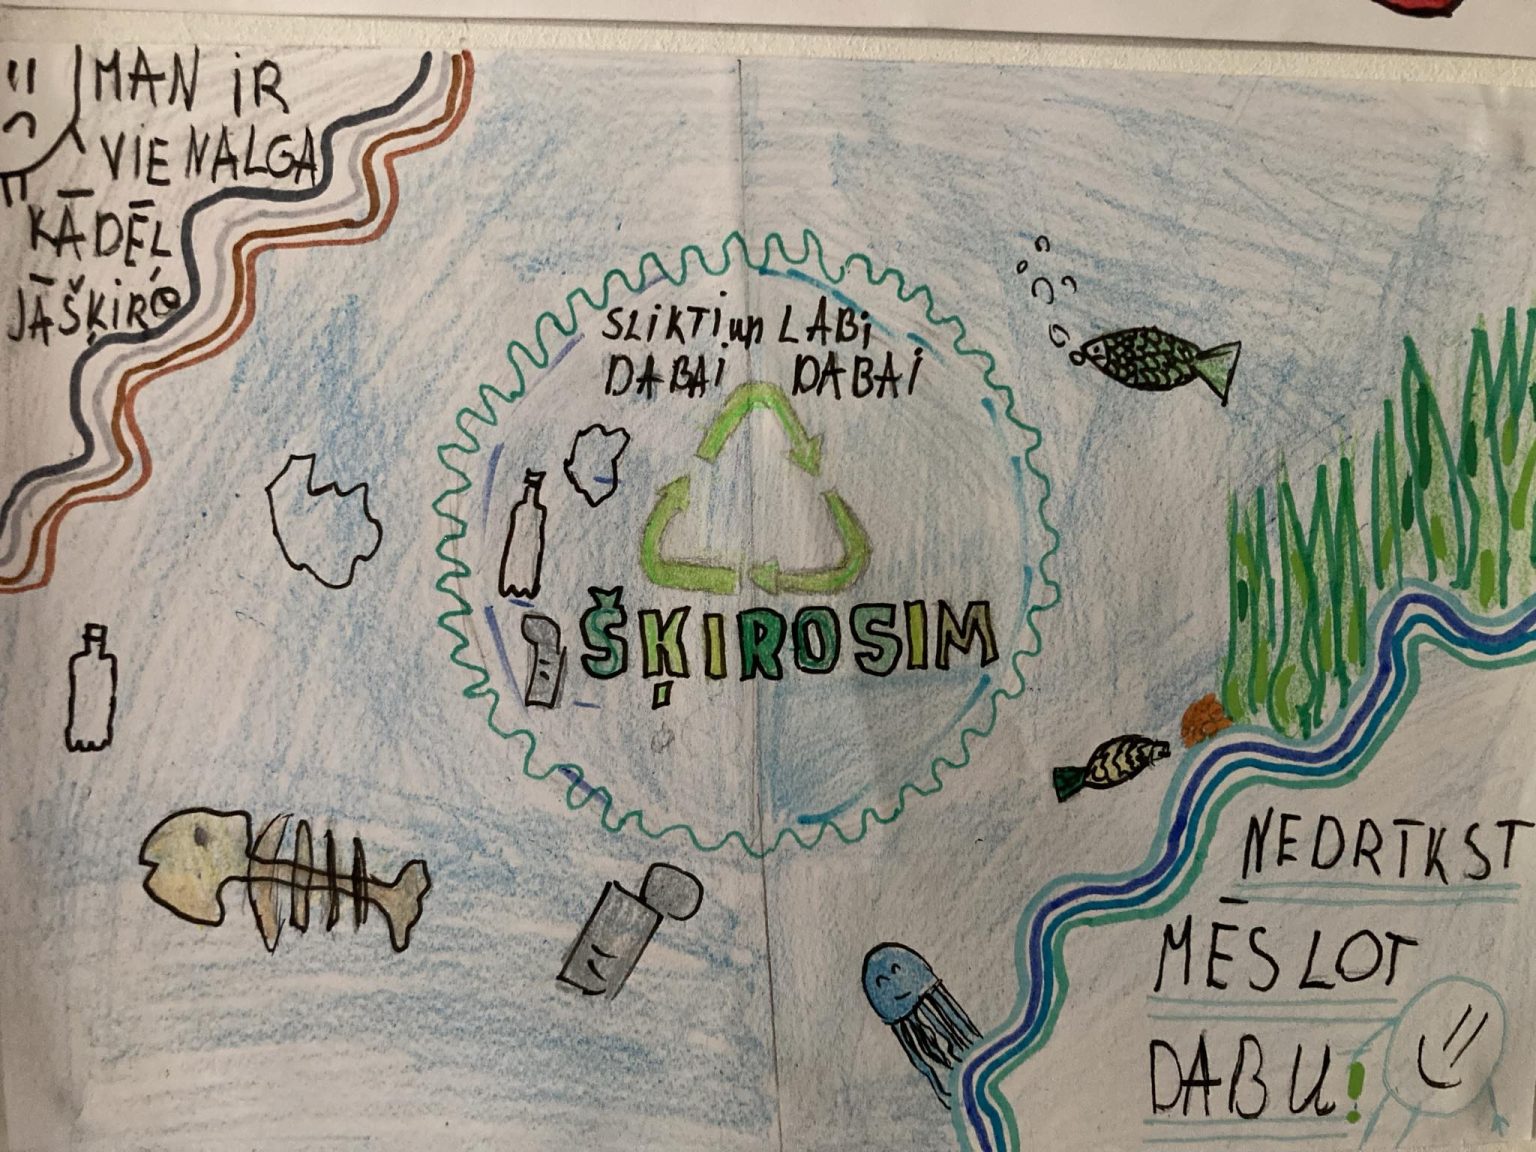 MAN iR
VIENALGA
KĀDĒĻ
JĀŠĶIRO
SLiKTi un LABi
DABAi DABAi
ŠĶIROSIM
NEDRTKST
MĒSLOT
DABU!